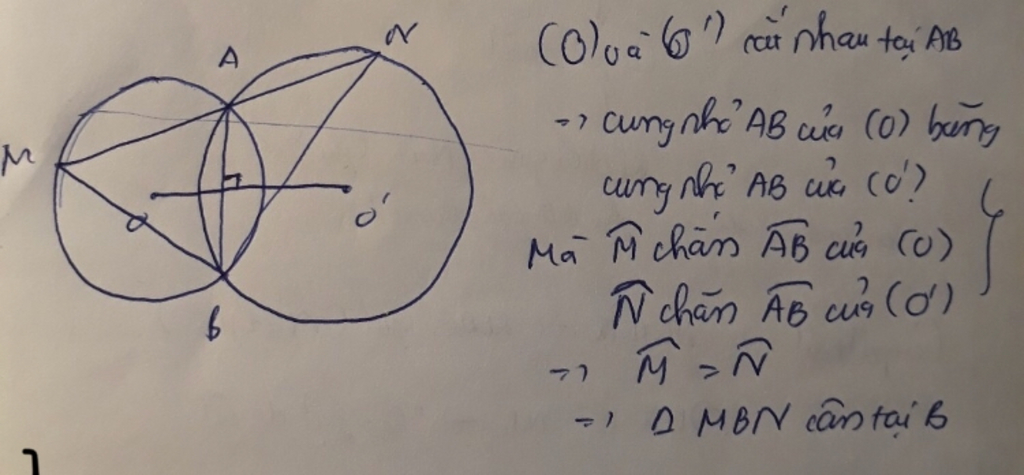 A
N
M
O
O'
B
(O) và (O') cắt nhau tại AB
=> cung nhỏ AB của (O) bằng
cung nhỏ AB của (O')
Mà M̂ chắn A͡B của (O)
N̂ chắn A͡B của (O')
=> M̂ = N̂
=> Δ MBN cân tại B